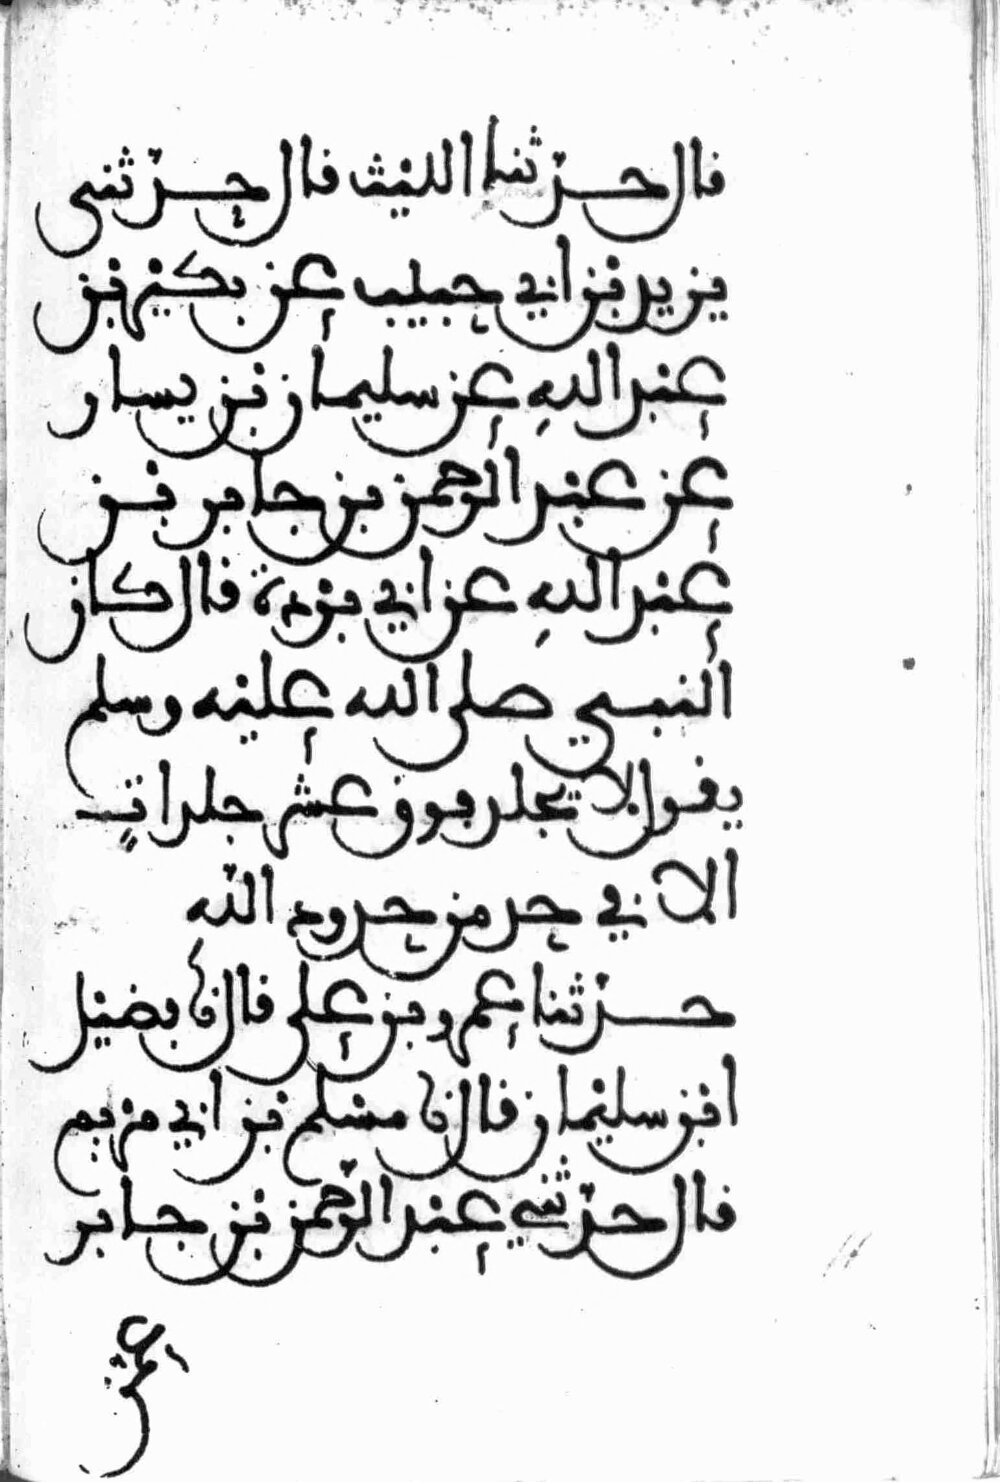 قال حدثنا الليث قال حدثني
يزيد بن ابي حبيب عن بكير بن
عبد الله عن سليمان بن يسار
عن عبد الرحمن بن جابر بن
عبد الله عن ابي بردة قال كان
النبي صلى الله عليه وسلم
يقول لا يجلد فوق عشر جلدات
الا في حد من حدود الله
حدثنا عمرو بن علي قال نا فضيل
ابن سليمان قال نا مسلم بن ابي مريم
قال حدثني عبد الرحمن بن جابر
عمن